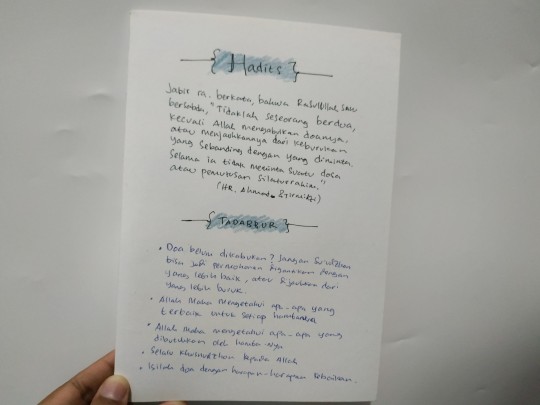 Hadits
Jabir ra. berkata, bahwa Rasulullah saw
bersabda, "Tidaklah seseorang berdoa,
kecuali Allah mengabulkan doanya.
atau menjauhkannya dari keburukan
yang sebanding dengan yang diminta.
Selama ia tidak meminta suatu dosa
atau pemutusan silaturrahim."
(HR. Ahmad & Tirmidzi)
TADABBUR
• Doa belum dikabulkan? Jangan Su'udzhan
bisa jadi permohonan digantikan dengan
yang lebih baik, atau dijauhkan dari
yang lebih buruk.
• Allah Maha Mengetahui apa-apa yang
terbaik untuk setiap hambanya
• Allah Maha mengetahui apa-apa yang
dibutuhkan oleh hamba-Nya
• Selalu khusnudzhan kepada Allah
• Isilah doa dengan harapan-harapan kebaikan.